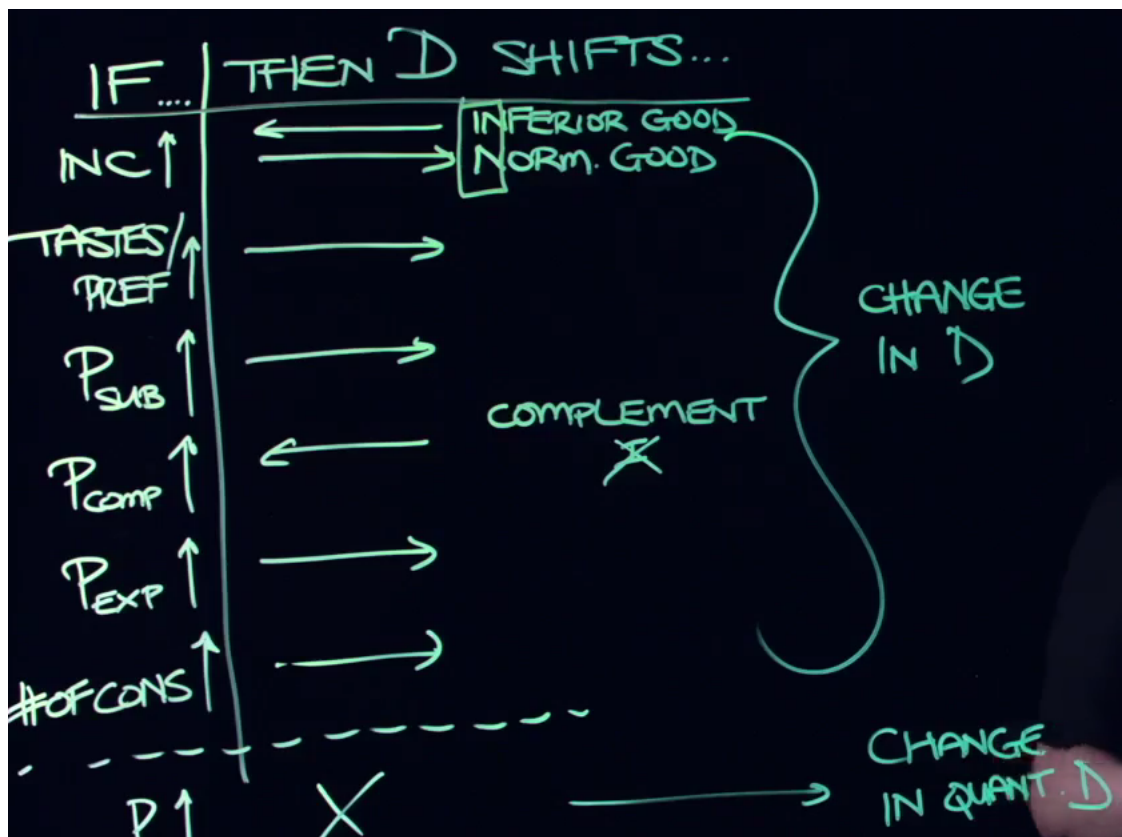 IF.... THEN D SHIFTS...
INC ↑ ← INFERIOR GOOD
→ NORM. GOOD
TASTES/
PREF ↑ →
P SUB ↑ →
COMPLEMENT
P COMP ↑ ←
P EXP ↑ →
# OF CONS ↑ →
CHANGE
IN D
P ↑ X → CHANGE
IN QUANT. D